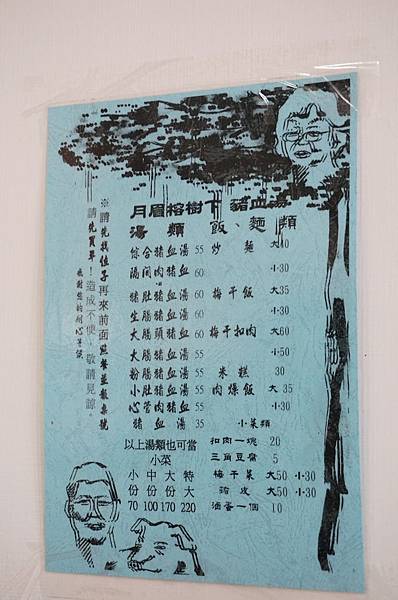 月眉榕樹下 豬血湯
湯 類 飯、麵 類
綜合豬血湯 55 炒 麵 大40
隔間肉豬血湯 60 小30
豬肚豬血湯 55 梅干飯 大35
生腸豬血湯 60 小30
大腸頭豬血湯 60 梅干扣肉 大60
大腸豬血湯 55 小50
粉腸豬血湯 55 米糕 30
小肚豬血湯 55 肉燥飯 大35
心管肉豬血湯 55 小30
豬 血 湯 35 小菜類
以上湯類也可當
小菜
小份 70
中份 100
大份 170
特大 220
扣肉一塊 20
三角豆腐 5
梅干菜 大50 小30
豬皮 大50 小30
滷蛋一個 10
※請先找位子再來前面點餐並報桌號
請先買單!造成不便,敬請見諒。
感謝您的耐心等候